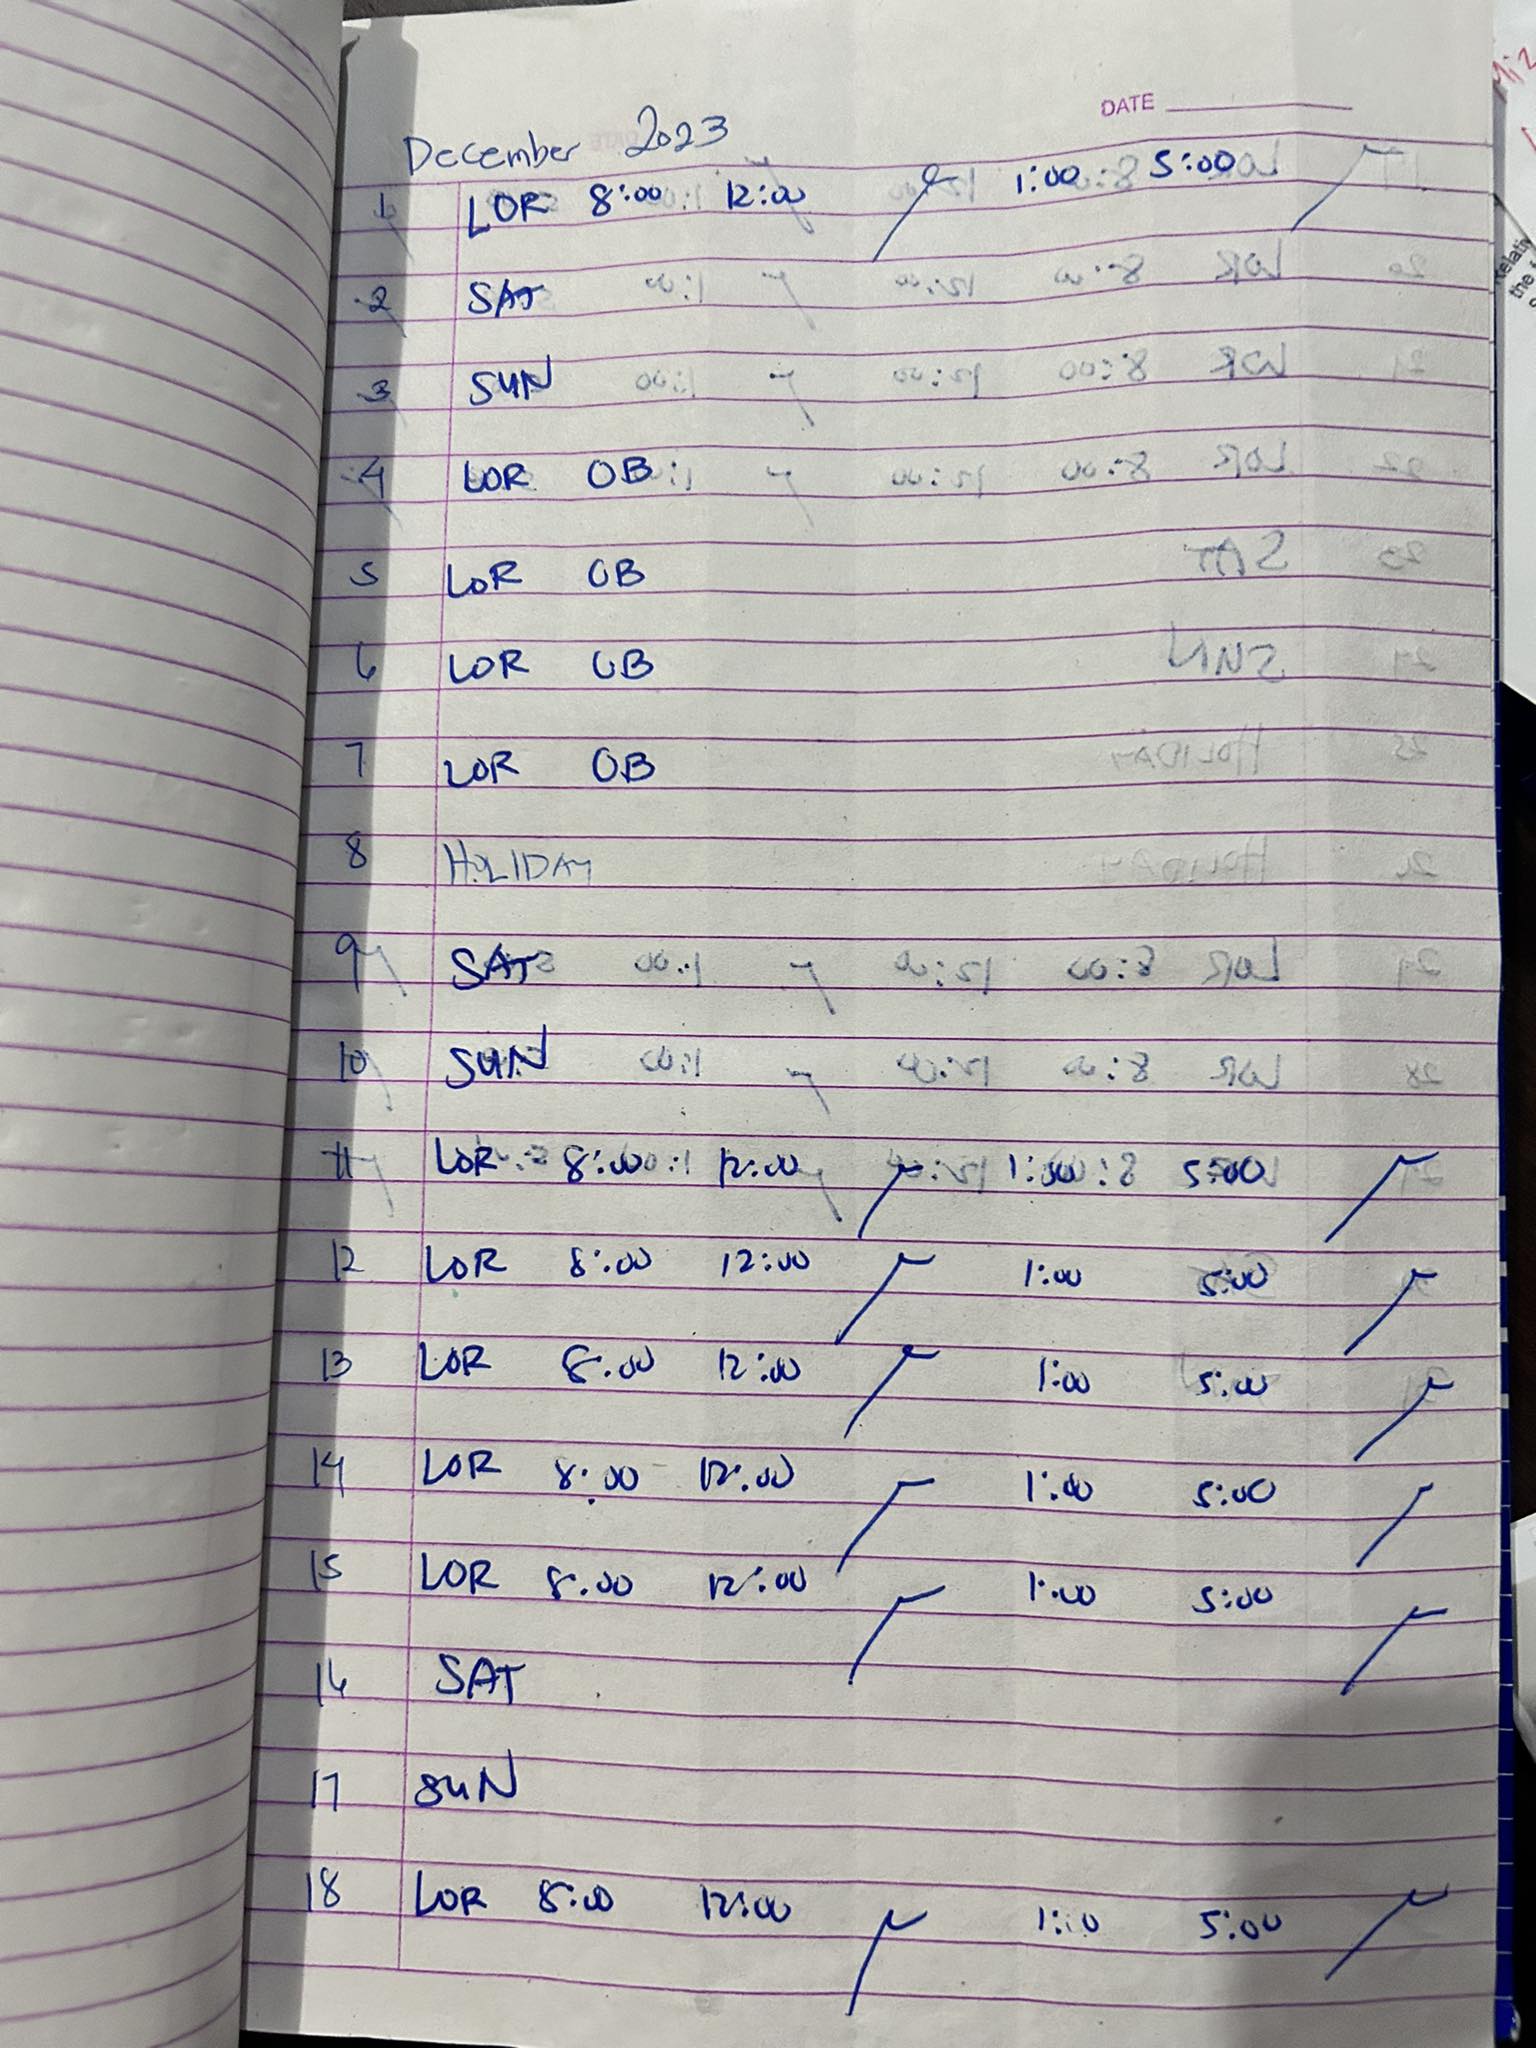 DATE
December 2023
1 LOR 8:00 12:00 1:00 5:00
2 SAT
3 SUN
4 LOR OB
5 LOR OB
6 LOR OB
7 LOR OB
8 HOLIDAY
9 SAT
10 SUN
11 LOR 8:00 12:00 1:00 5:00
12 LOR 8:00 12:00 1:00 5:00
13 LOR 8:00 12:00 1:00 5:00
14 LOR 8:00 12:00 1:00 5:00
15 LOR 8:00 12:00 1:00 5:00
16 SAT
17 SUN
18 LOR 8:00 12:00 1:00 5:00